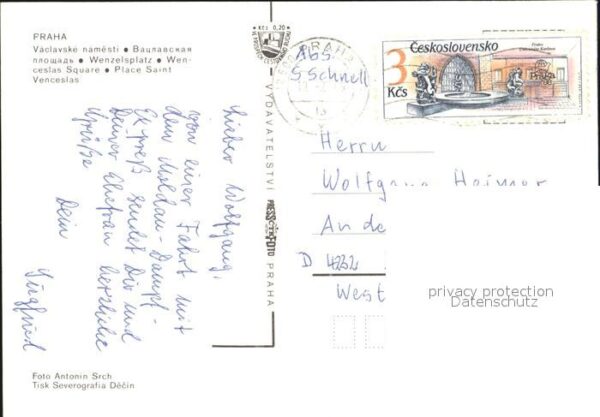 PRAHA
Václavské náměstí ● Вацлавская
площадь ● Wenzelsplatz ● Wen-
ceslas Square ● Place Saint
Venceslas
Lieber Wolfgang,
von einer Fahrt mit
dem Moldau-Dampf-
Expreß sendet Dir und
Deiner Ehefrau herzliche
Grüße
Dein
Siegfried
Foto Antonín Srch
Tisk Severografia Děčín
Kčs 0,20
VYDAVATELSTVÍ PRESSFOTO PRAHA
PRAHA
Abs.
S Schnell
Československo
3
Kčs
Herrn
Wolfgang
An de
D 4232
West
privacy protection
Datenschutz